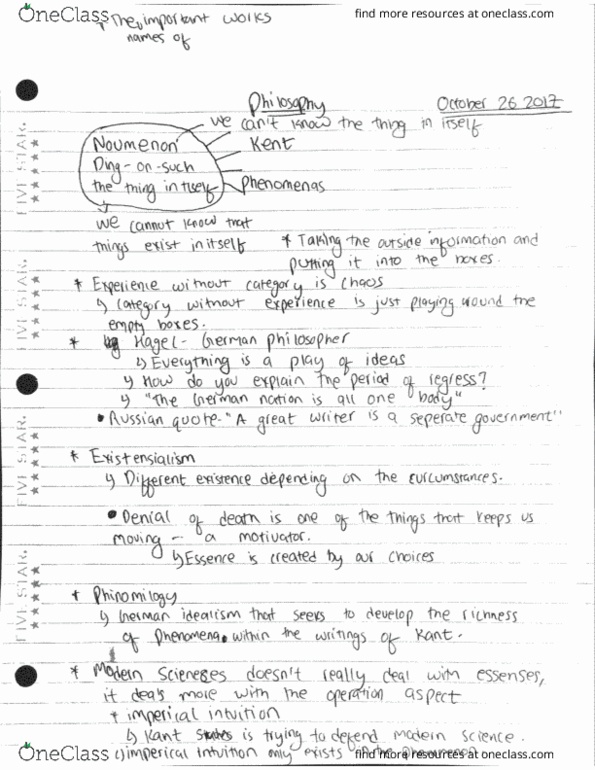 OneClass find more resources at oneclass.com
The important works
names of
Philosophy October 26 2017
we can't know the thing in itself
Noumenon Kent
Ding-on-such
the thing in itself Phenomenas
we cannot know that
things exist in itself * Taking the outside information and
putting it into the boxes.
* Experience without category is chaos
↳ category without experience is just playing around the
empty boxes.
* Hagel - German philosopher
↳ Everything is a play of ideas
↳ How do you explain the period of regress?
↳ "The German nation is all one body"
• Russian quote - "A great writer is a seperate government"
* Existensialism
↳ Different existence depending on the curcumstances.
• Denial of death is one of the things that keeps us
moving - a motivator.
↳ Essence is created by our choices
* Phinomilogy
↳ German idealism that seeks to develop the richness
of phenomena within the writings of Kant.
* Modern Scieneses doesn't really deal with essenses,
it deals more with the operation aspect
* imperical intuition
↳ Kant is trying to defend modern science.
↳ imperical intuition only exists
OneClass find more resources at oneclass.com
FIVE STAR.
FIVE STAR.
FIVE STAR.
FIVE STAR.